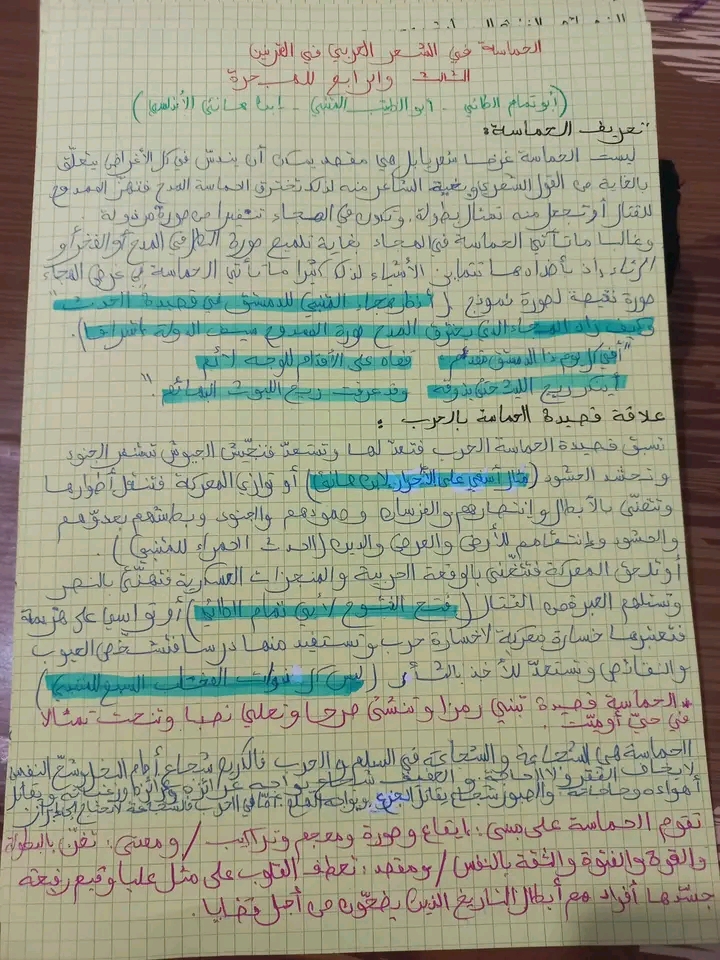 الحماسة في الشعر العربي في القرنين
الثالث والرابع للهجرة
(أبو تمام الطائي - أبو الطيب المتنبي - ابن هانئ الأندلسي)
تعريف الحماسة:
ليست الحماسة غرضا شعريا بل هي مقصد يمكن أن يندسّ في كل الأغراض يتعلّق
بالغاية من القول الشعري وبغية الشاعر منه لذلك تخترق الحماسة المدح فتهزّ الممدوح
للقتال أو تجعل منه تمثال بطولة. وتكون في الهجاء تنفيرا من صورة مرذولة.
وغالبا ما تأتي الحماسة في الهجاء بغاية تلميع صورة البطل في المدح أو الفخر أو
الرثاء إذ بأضدادها تتمايز الأشياء لذلك كثيرا ما تأتي الحماسة في غرض الهجاء
صورة نقيضة لصورة نموذج (أنظر هجاء المتنبي للدمستق في قصيدة "الحدث"
وكيف زاد الهجاء الذي يخترق المدح صورة الممدوح سيف الدولة إشراقا).
"أفي كل يوم ذا الدمستق مقدم قفاه على الأقدام للوجه لائم
أينكر ريح الليث حتى يذوقه وقد عرفت ريح الليوث البهائم".
علاقة قصيدة الحماسة بالحرب:
تسبق قصيدة الحماسة الحرب فتعدّ لها وتستعدّ فتجيّش الجيوش تستنفر الجنود
وتحشد الحشود (مثال أسفي على الأحرار لابن هانئ) أو توازي المعركة فتنقل أطوارها
وتتغنّى بالأبطال وإنتصارهم والفرسان وصمودهم والجنود وبطشهم بعدوّهم
والحشود وإنتقامهم للأرض والعرض والدين (الحدث الحمراء للمتنبي).
أو تلحق المعركة فتتغنّى بالوقعة الحربية والمنجزات العسكرية فتهنّئ بالنصر
وتستلهم العبرة من القتال (فتح الفتوح لأبي تمام الطائي) أو تواسي على هزيمة
فتعتبرها خسارة معركة لا خسارة حرب وتستفيد منها درسا فتشخّص العيوب
والنقائص وتستعدّ للأخذ بالثأر (ليس كل ذوات المخلب السبع للمتنبي)
* الحماسة قصيدة تبني رمزا وتنشئ صرحا وتعلي نصبا وتنحت تمثالا
في حيّ أو ميّت.
الحماسة هي الشجاعة والشجاعة في السلم والحرب فالكريم شجاع أمام البخل وشحّ النفس
لا يخاف الفقر ولا الحاجة. والعفيف شجاع يواجه غرائزه ويقاتل
أهواءه والصبور شجاع يقاتل الجزع ويواجه الهلع أمّا في الحرب فالشجاعة لا تحتاج إلى
تقوم الحماسة على مبنى: إيقاع وصورة ومعجم وتراكيب / ومعنى: تغنّ بالبطولة
والقوة والفتوة والثقة بالنفس / ومقصد: تعطف القلوب على مثل عليا وقيم رفيعة
جسّدها أفراد هم أبطال التاريخ الذين يضحّون من أجل قضايا.